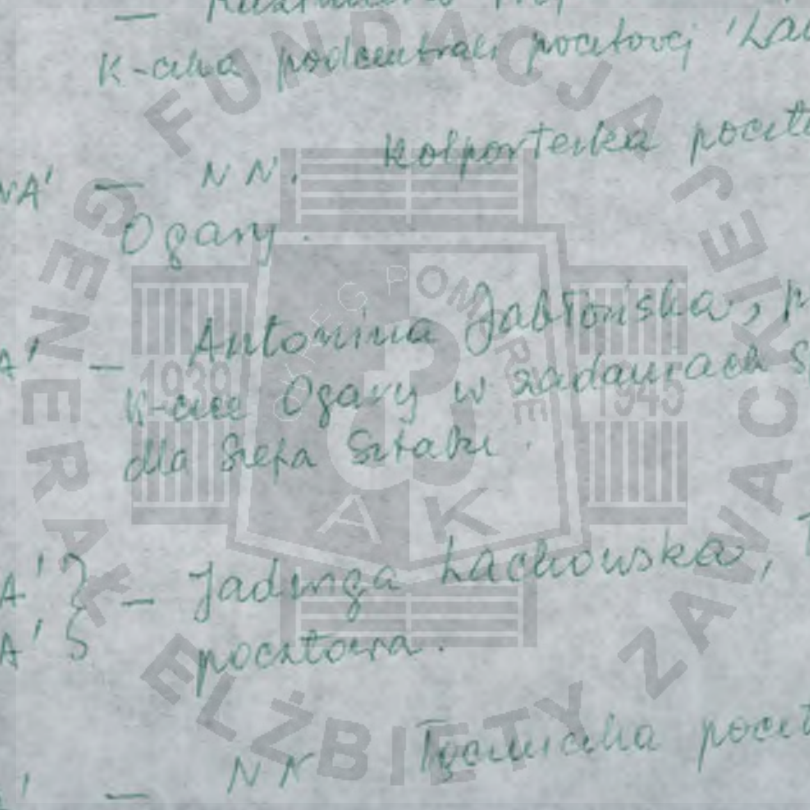 K-cika podcentrali pocztovej 'La
NA' — NN. Kolporterka poczt
Ogary.
A' — Antonina Jabłońska,
K-cee Ogary w zadaniach
dla Szefa Sztabu.
A' } — Jadwiga Lachowska,
A' pocztowa.
' — NN Łączniczka poczt
FUNDACJA GENERAŁ ELŻBIETY ZAWACKIEJ
OKRĘG POMORZE
1939 1945
AK